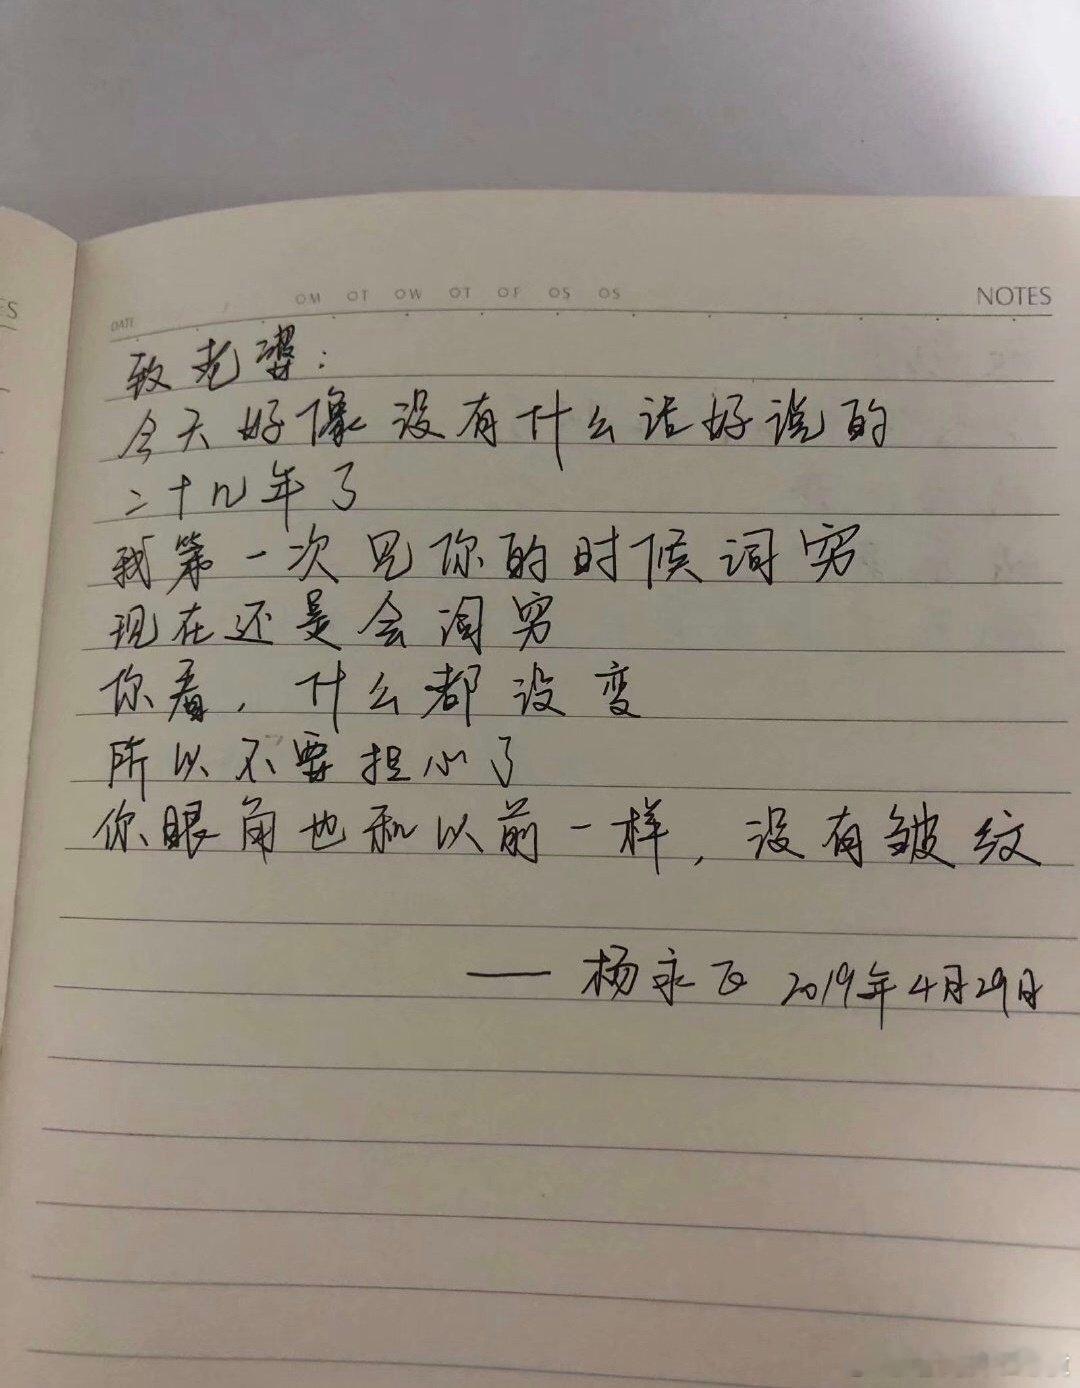 ES
DATE
OM OT OW OT OF OS OS
NOTES
致老婆：
今天好像没有什么话好说的
二十九年了
我第一次见你的时候词穷
现在还是会词穷
你看，什么都没变
所以不要担心了
你眼角也和以前一样，没有皱纹
—— 杨永 2019年4月29日